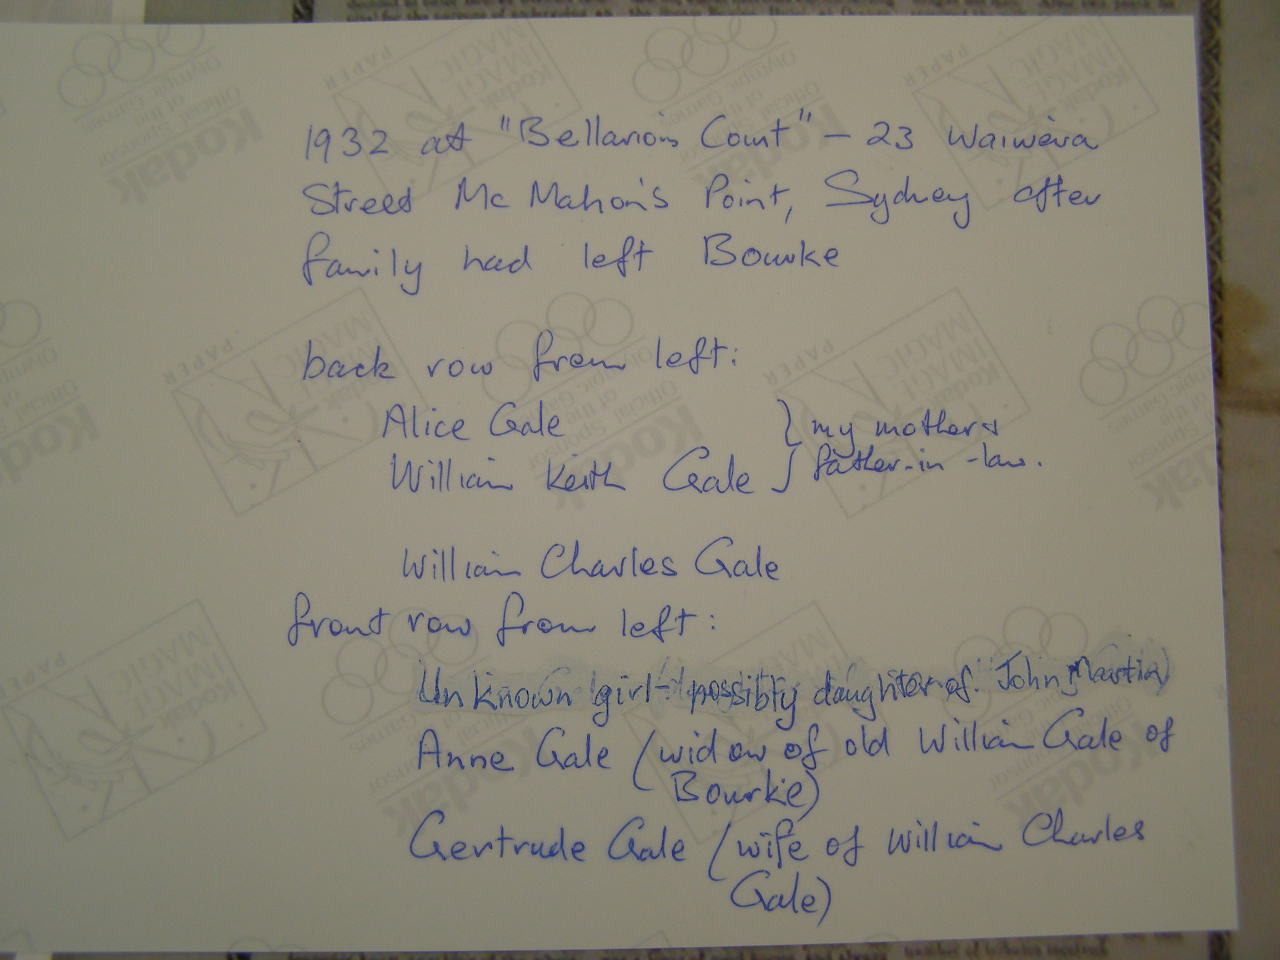 1932 at "Bellarion's Court" - 23 Waiwera
Street Mc Mahon's Point, Sydney after
family had left Bourke
back row from left:
Alice Gale } my mother +
William Keith Gale } father-in-law.
William Charles Gale
front row from left:
Unknown girl - possibly daughter of John Martin)
Anne Gale (widow of old William Gale of
Bourke)
Gertrude Gale (wife of William Charles
Gale)
Kodak
Official Sponsor
of the
Olympic Games
Kodak
IMAGE
MAGIC
PAPER